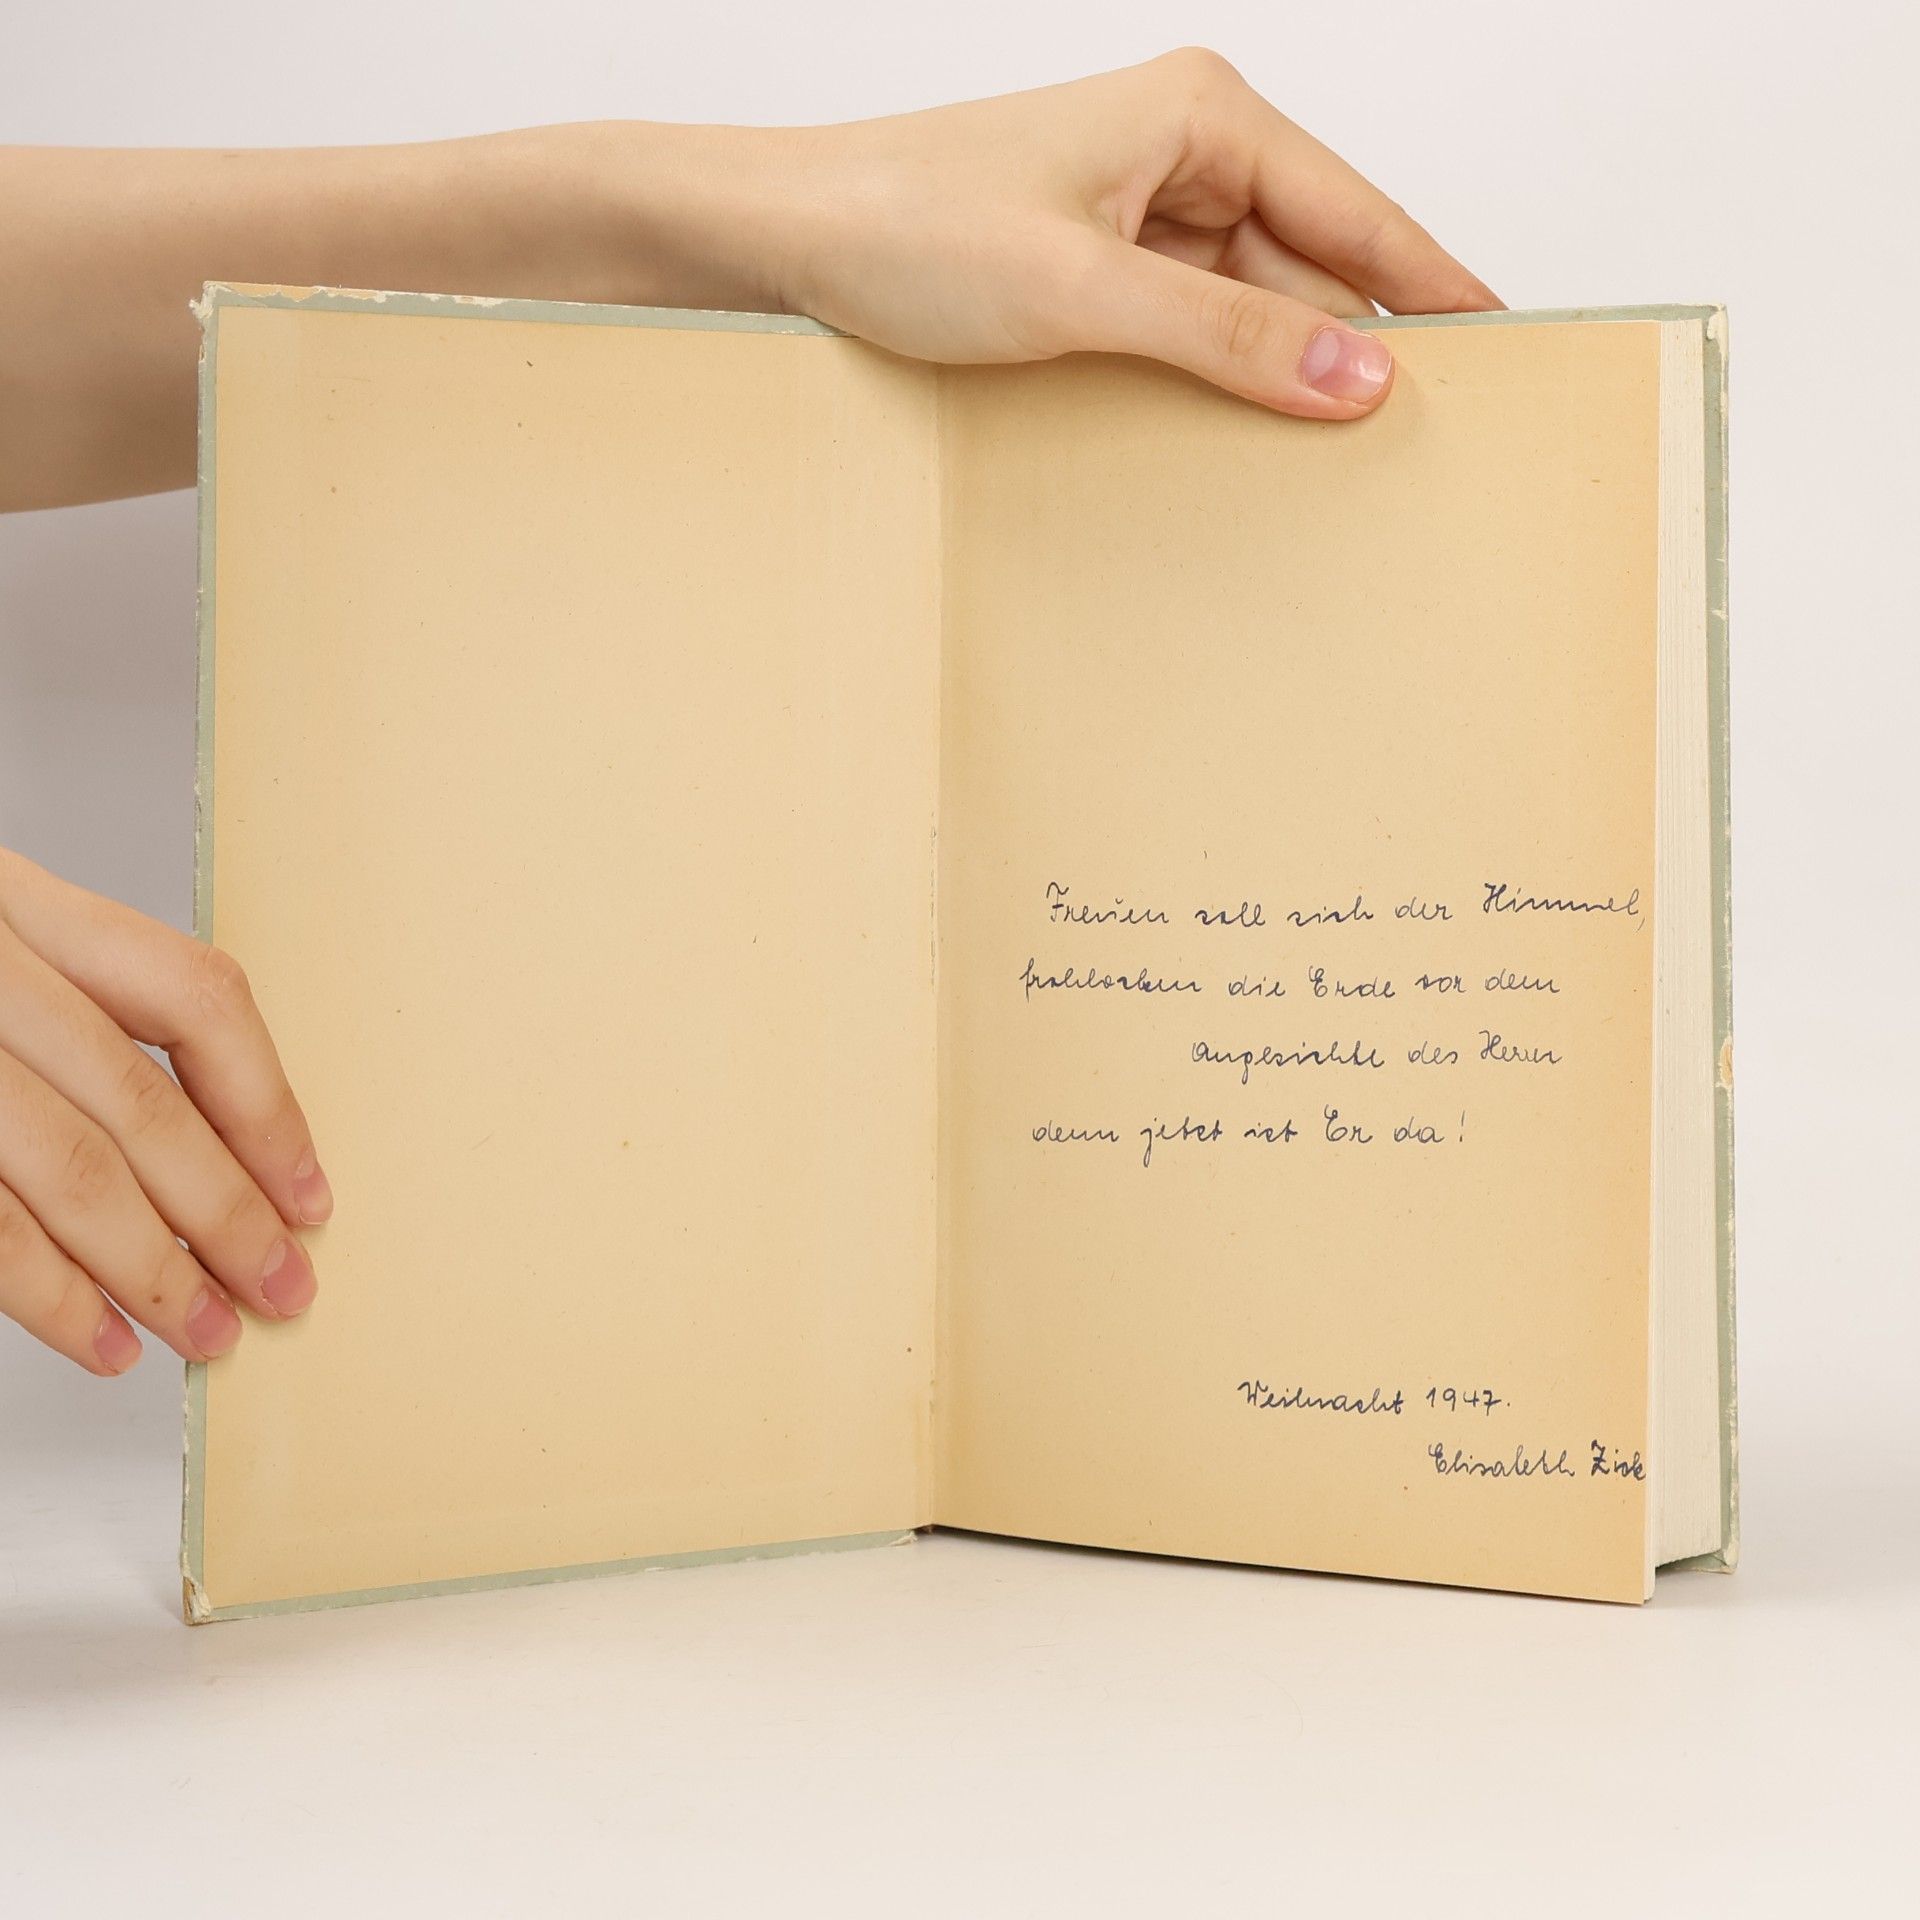 Freuen soll sich der Himmel,
frohlocken die Erde vor dem
Angesichte des Herrn
denn jetzt ist Er da!
Weihnacht 1947.
Elisabeth Zick